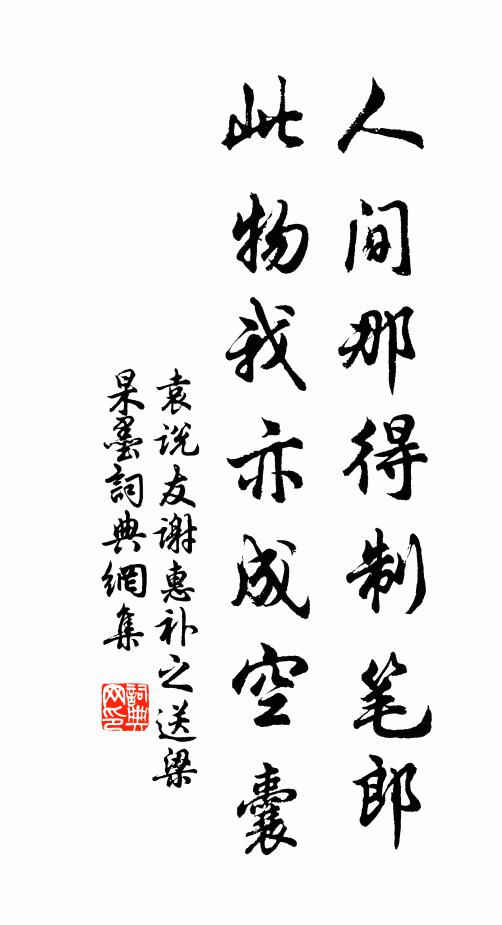 人间那得制笔郎
此物我亦成空囊
袁说友谢惠补之送梁
杲墨詞典網集
詞典
网印